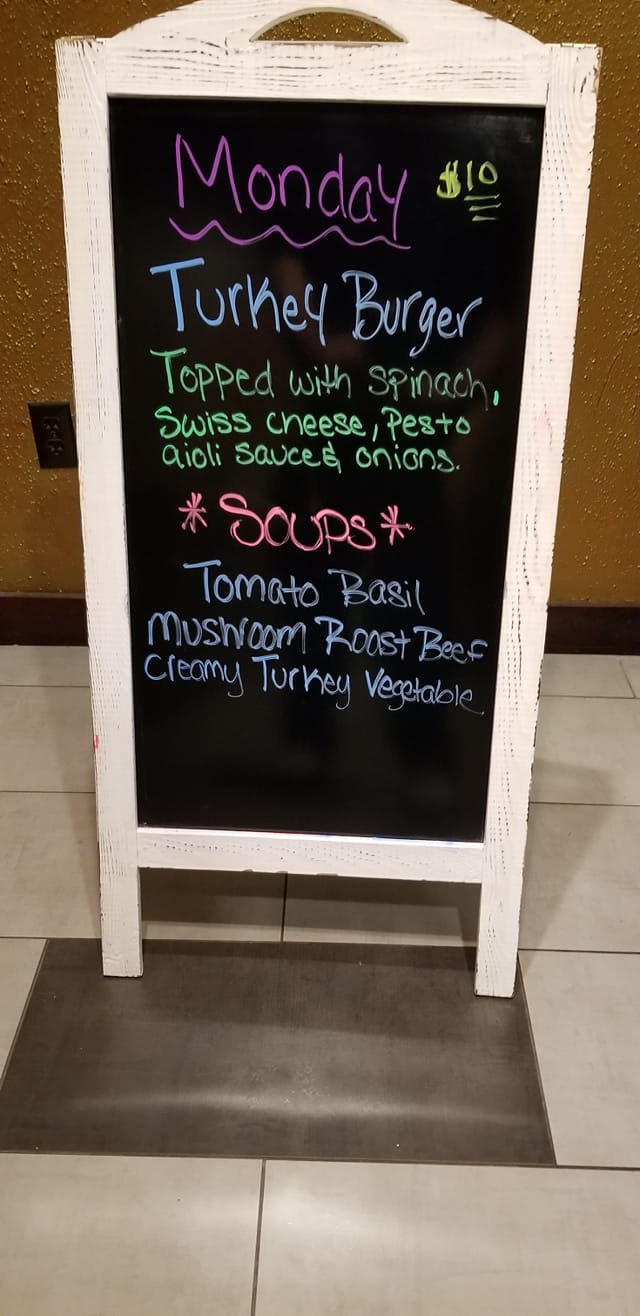 Monday $10
Turkey Burger
Topped with spinach,
Swiss cheese, Pesto
aioli sauce & onions.
*Soups*
Tomato Basil
Mushroom Roast Beef
Creamy Turkey Vegetable